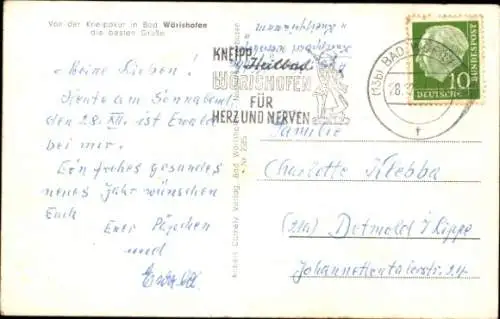 Von der Kneippkur in Bad Wörishofen
die besten Grüße
Meine Lieben!
Heute am Sonnabend
den 28. XII. ist Ewald
bei mir.
Ein frohes gesundes
neues Jahr wünschen
Euch
Euer Päpchen
und
Ewald
KNEIPP
Heilbad
WÖRISHOFEN
FÜR
HERZ UND NERVEN
(13b) BAD WÖRISHOFEN
28.
10
DEUTSCHE
BUNDESPOST
Familie
Charlotte Klebba
Detmold i/Lippe
Johannettentalerstr. 24